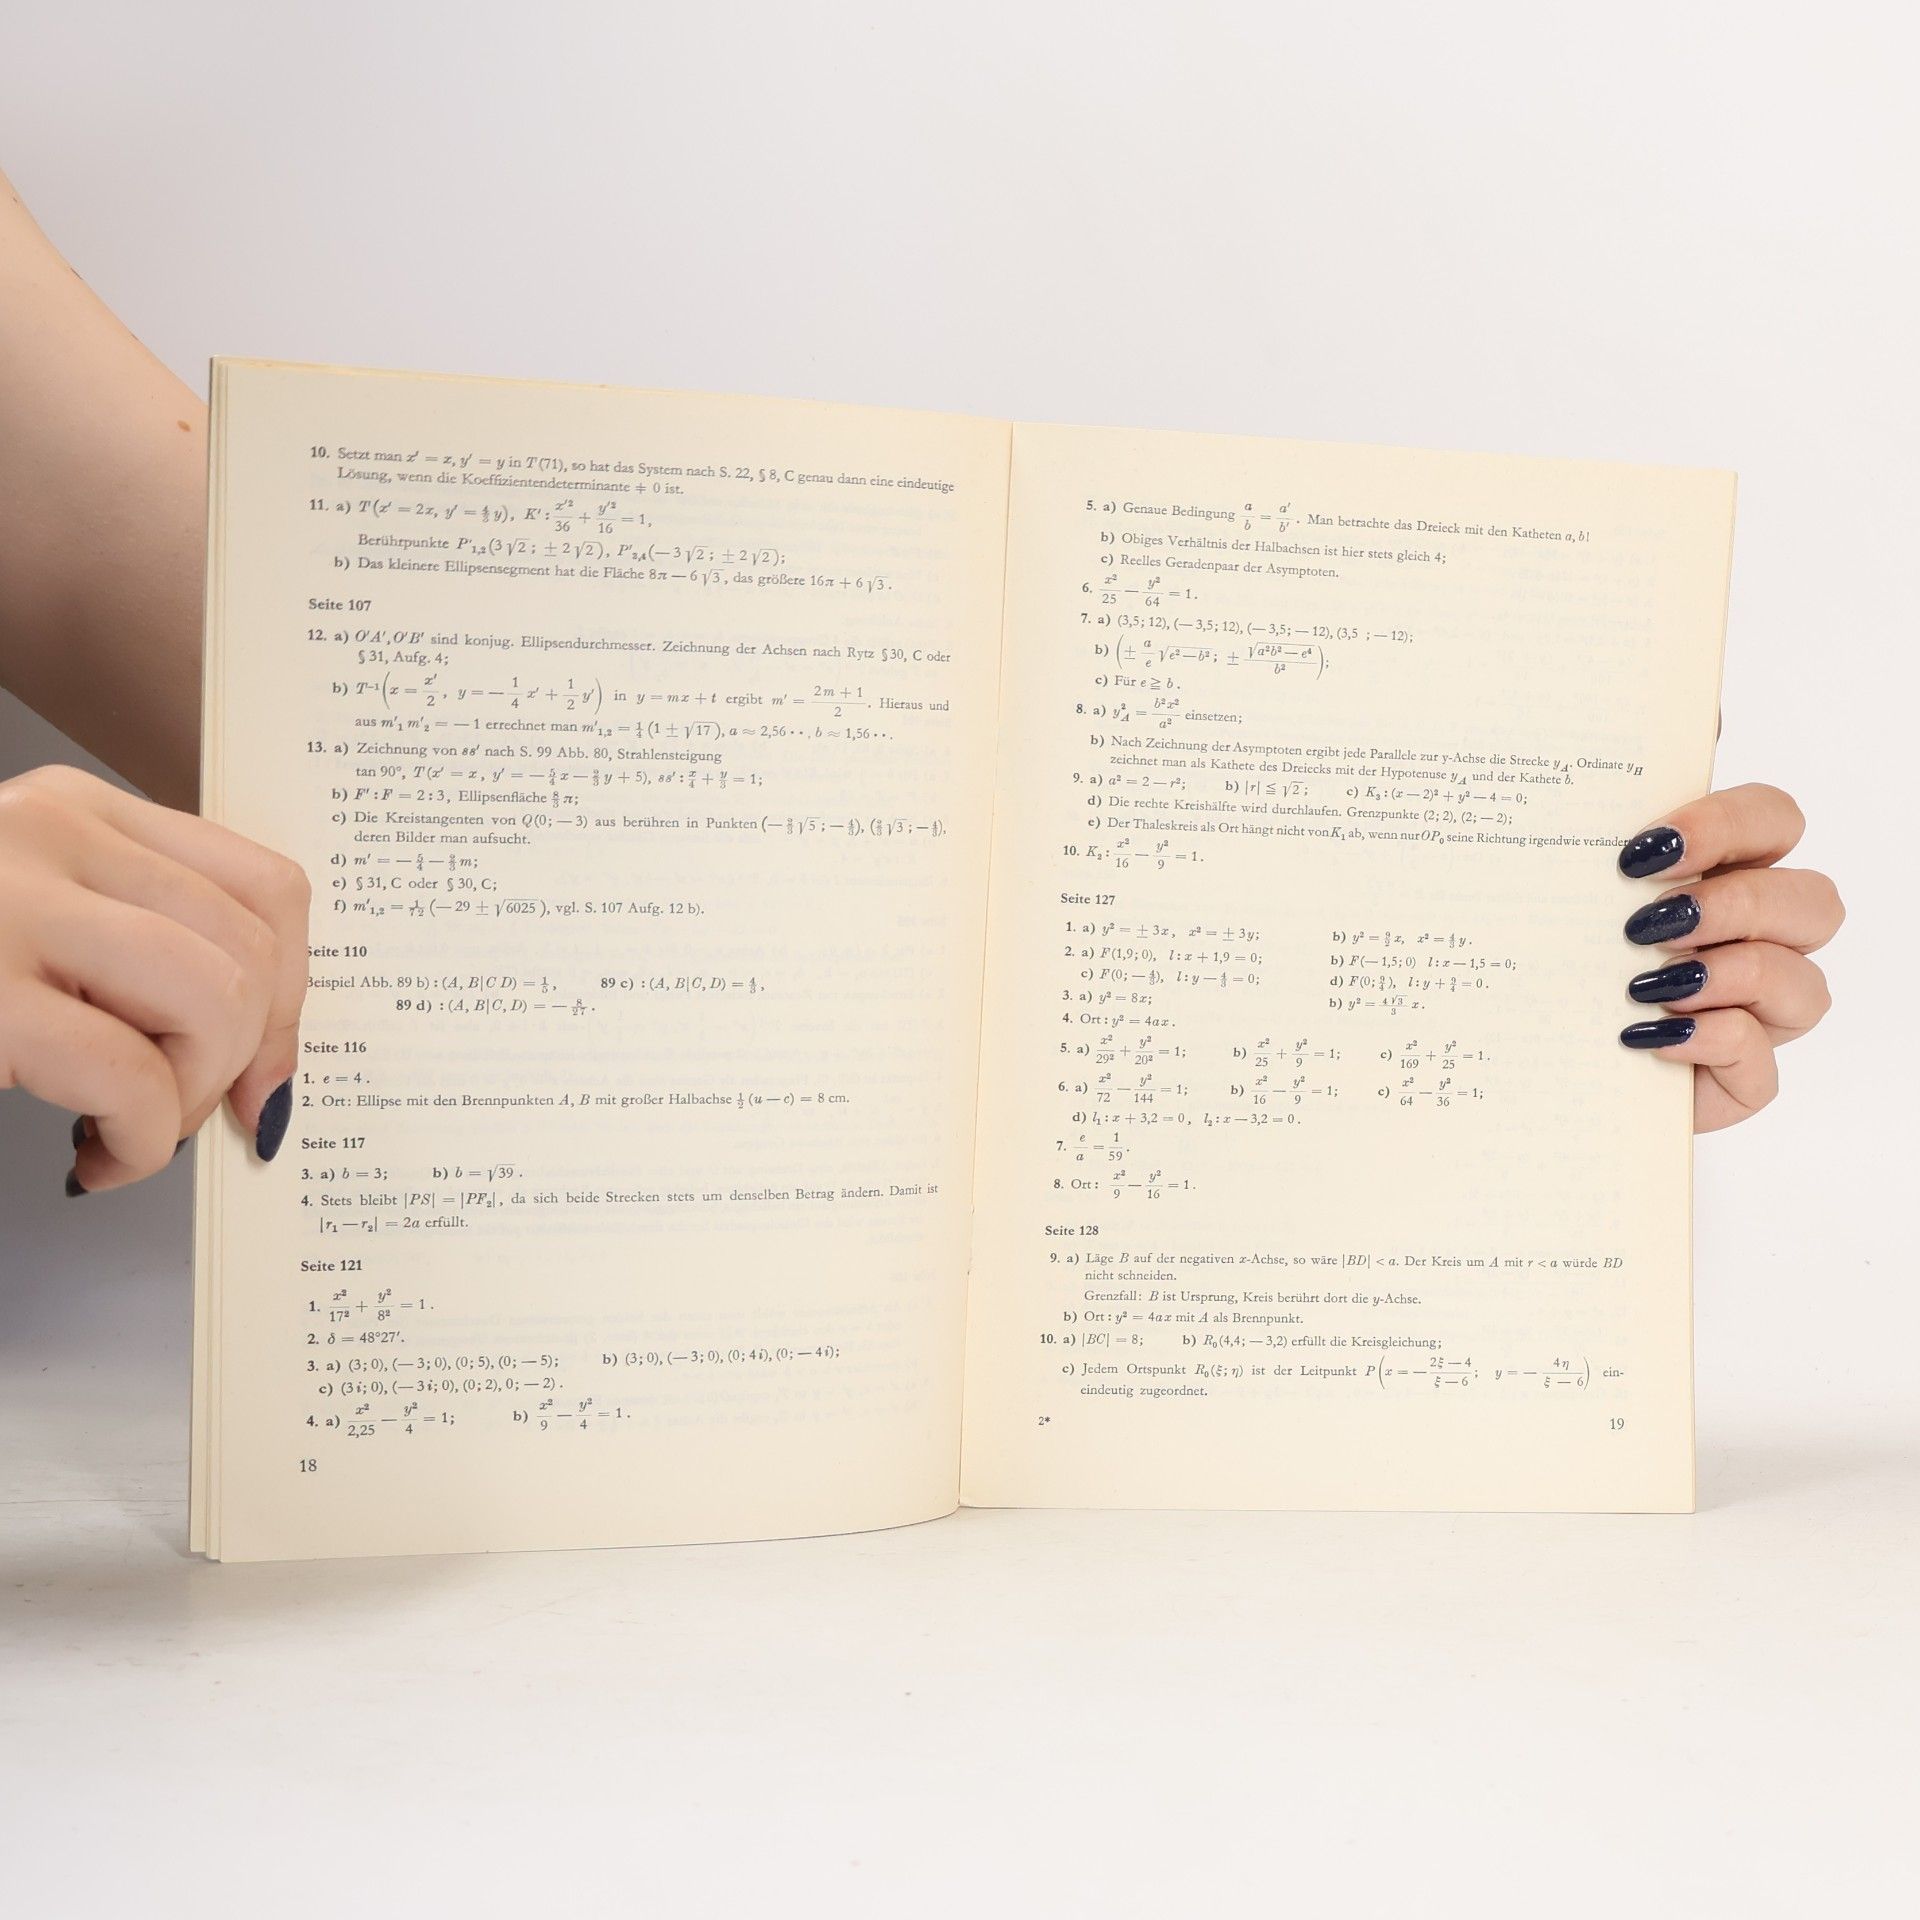 10. Setzt man x' = x, y' = y in T (71), so hat das System nach S. 22, § 8, C genau dann eine eindeutige
Lösung, wenn die Koeffizientendeterminante ≠ 0 ist.
11. a) T(x' = 2x, y' = 4/3 y), K': x'²/36 + y'²/16 = 1,
Berührpunkte P'₁,₂(3√2; ±2√2), P'₃,₄(−3√2; ±2√2);
b) Das kleinere Ellipsensegment hat die Fläche 8π − 6√3, das größere 16π + 6√3.
Seite 107
12. a) O'A', O'B' sind konjug. Ellipsendurchmesser. Zeichnung der Achsen nach Rytz § 30, C oder
§ 31, Aufg. 4;
b) T⁻¹(x = x'/2, y = −1/4 x' + 1/2 y') in y = mx + t ergibt m' = (2m + 1)/2. Hieraus und
aus m'₁ m'₂ = −1 errechnet man m'₁,₂ = 1/4 (1 ± √17), a ≈ 2,56··, b ≈ 1,56··.
13. a) Zeichnung von ss' nach S. 99 Abb. 80, Strahlensteigung
tan 90°, T(x' = x, y' = −5/4 x − 2/3 y + 5), ss': x/4 + y/3 = 1;
b) F' : F = 2 : 3, Ellipsenfläche 8/3 π;
c) Die Kreistangenten von Q(0; −3) aus berühren in Punkten
deren Bilder man aufsucht.
d) m' = −5/4 − 2/3 m;
e) § 31, C oder § 30, C;
f) m'₁,₂ = 1/72 (−29 ± √6025), vgl. S. 107 Aufg. 12 b).
Seite 110
Beispiel Abb. 89 b) : (A, B|C D) = 1/5, 89 c) : (A, B|C, D) = 4/3,
89 d) : (A, B|C, D) = −8/27.
Seite 116
1. e = 4.
2. Ort: Ellipse mit den Brennpunkten A, B mit großer Halbachse 1/2 (u − c) = 8 cm.
Seite 117
3. a) b = 3; b) b = √39.
4. Stets bleibt |PS| = |PF₂|, da sich beide Strecken stets um denselben Betrag ändern. Damit ist
|r₁ − r₂| = 2a erfüllt.
Seite 121
1. x²/17² + y²/8² = 1.
2. δ = 48°27'.
3. a) (3; 0), (−3; 0), (0; 5), (0; −5); b) (3; 0), (−3; 0), (0; 4i), (0; −4i);
c) (3i; 0), (−3i; 0), (0; 2), 0; −2).
4. a) x²/2,25 − y²/4 = 1; b) x²/9 − y²/4 = 1.
18
5. a) Genaue Bedingung a/b = a'/b'. Man betrachte das Dreieck mit den Katheten a, b!
b) Obiges Verhältnis der Halbachsen ist hier stets gleich 4;
c) Reelles Geradenpaar der Asymptoten.
6. x²/25 − y²/64 = 1.
7. a) (3,5; 12), (−3,5; 12), (−3,5; −12), (3,5 ; −12);
b) (± a/e √(e² − b²); ± √(a²b² − e⁴)/b²);
c) Für e ≧ b.
8. a) y²_A = b²x²/a² einsetzen;
b) Nach Zeichnung der Asymptoten ergibt jede Parallele zur y-Achse die Strecke y_A. Ordinate y_H
zeichnet man als Kathete des Dreiecks mit der Hypotenuse y_A und der Kathete b.
9. a) a² = 2 − r²; b) |r| ≦ √2; c) K₃ : (x − 2)² + y² − 4 = 0;
d) Die rechte Kreishälfte wird durchlaufen. Grenzpunkte (2; 2), (2; −2);
e) Der Thaleskreis als Ort hängt nicht von K₁ ab, wenn nur OP₀ seine Richtung irgendwie
10. K₂ : x²/16 − y²/9 = 1.
Seite 127
1. a) y² = ±3x, x² = ±3y; b) y² = 9/2 x, x² = 4/3 y.
2. a) F(1,9; 0), l : x + 1,9 = 0; b) F(−1,5; 0) l : x − 1,5 = 0;
c) F(0; −4/3), l : y − 4/3 = 0; d) F(0; 9/4), l : y + 9/4 = 0.
3. a) y² = 8x; b) y² = 4√3/3 x.
4. Ort : y² = 4ax.
5. a) x²/29² + y²/20² = 1; b) x²/25 + y²/9 = 1; c) x²/169 + y²/25 = 1.
6. a) x²/72 − y²/144 = 1; b) x²/16 − y²/9 = 1; c) x²/64 − y²/36 = 1;
d) l₁ : x + 3,2 = 0, l₂ : x − 3,2 = 0.
7. e/a = 1/59.
8. Ort : x²/9 − y²/16 = 1.
Seite 128
9. a) Läge B auf der negativen x-Achse, so wäre |BD| < a. Der Kreis um A mit r < a würde BD
nicht schneiden.
Grenzfall: B ist Ursprung, Kreis berührt dort die y-Achse.
b) Ort : y² = 4ax mit A als Brennpunkt.
10. a) |BC| = 8; b) R₀(4,4; −3,2) erfüllt die Kreisgleichung;
c) Jedem Ortspunkt R₀(ξ; η) ist der Leitpunkt P(x = −(2ξ − 4)/(ξ − 6); y = −4η/(ξ − 6)) ein-
eindeutig zugeordnet.
2* 19